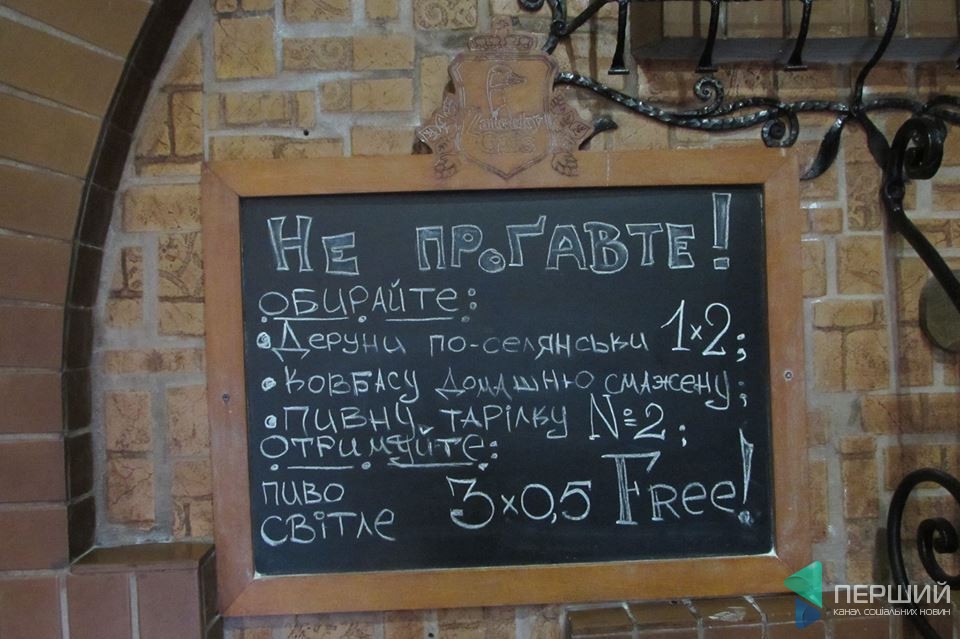 Не проґавте!
Обирайте:
• Деруни по-селянськи 1×2;
• Ковбасу домашню смажену;
• Пивну тарілку №2;
Отримуйте:
пиво 3×0,5 Free!
світле
ПЕРШИЙ
КАНАЛ СОЦІАЛЬНИХ НОВИН